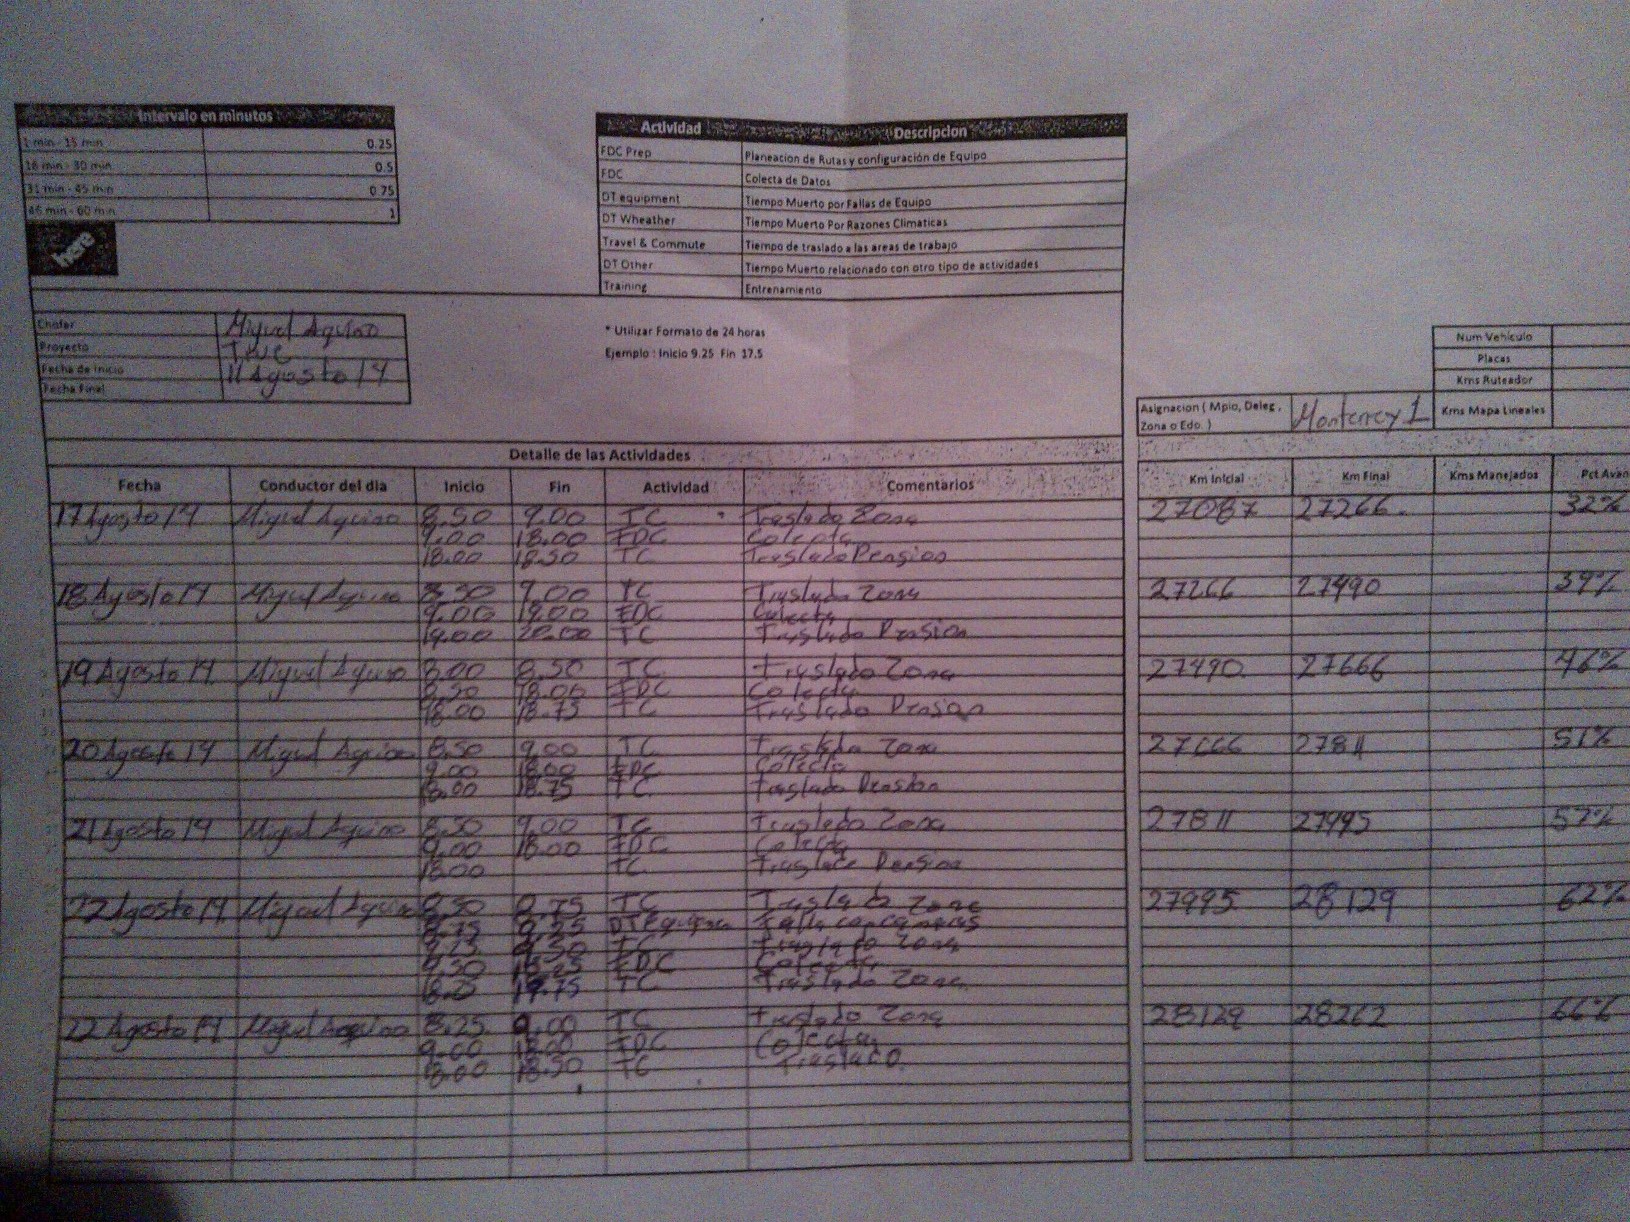 Intervalo en minutos
1 min - 15 min 0.25
16 min - 30 min 0.5
31 min - 45 min 0.75
46 min - 60 min 1
here
Actividad Descripcion
FDC Prep Planeacion de Rutas y configuración de Equipo
FDC Colecta de Datos
DT equipment Tiempo Muerto por Fallas de Equipo
DT Wheather Tiempo Muerto Por Razones Climaticas
Travel & Commute Tiempo de traslado a las areas de trabajo
DT Other Tiempo Muerto relacionado con otro tipo de actividades
Training Entrenamiento
Chofer Miguel Aquino
Proyecto
Fecha de Inicio 11 Agosto 14
Fecha Final
* Utilizar Formato de 24 horas
Ejemplo : Inicio 9.25 Fin 17.5
Num Vehículo
Placas
Kms Ruteador
Kms Mapa Lineales
Asignacion ( Mpio, Deleg, Zona o Edo. ) Monterrey 1
Detalle de las Actividades
Fecha Conductor del dia Inicio Fin Actividad Comentarios Km Inicial Km Final Kms Manejados Pct Avan
17 Agosto 14 Miguel Aquino 8.50 9.00 TC Traslado Zona 27087 27266 32%
9.00 18.00 FDC Colecta
18.00 18.50 TC Traslado Pension
18 Agosto 14 Miguel Aquino 8.50 9.00 TC Traslado Zona 27266 27490 39%
9.00 19.00 FDC Colecta
19.00 20.00 TC Traslado Pension
19 Agosto 14 Miguel Aquino 8.00 8.50 TC Traslado Zona 27490 27666 46%
8.50 18.00 FDC Colecta
18.00 18.75 TC Traslado Pension
20 Agosto 14 Miguel Aquino 8.50 9.00 TC Traslado Zona 27666 27811 51%
9.00 18.00 FDC Colecta
18.00 18.75 TC Traslado Pension
21 Agosto 14 Miguel Aquino 8.50 9.00 TC Traslado Zona 27811 27995 57%
9.00 18.00 FDC Colecta
18.00 TC Traslado Pension
22 Agosto 14 Miguel Aquino 8.50 8.75 TC Traslado Zona 27995 28129 62%
8.75 9.25 DT Equipment Falla con camaras
9.25 9.50 TC Traslado Zona
9.50 18.25 FDC Colecta
18.25 19.75 TC Traslado Zona
22 Agosto 14 Miguel Aquino 8.25 9.00 TC Traslado Zona 28129 28262 66%
9.00 18.00 FDC Colecta
18.00 18.50 TC Traslado